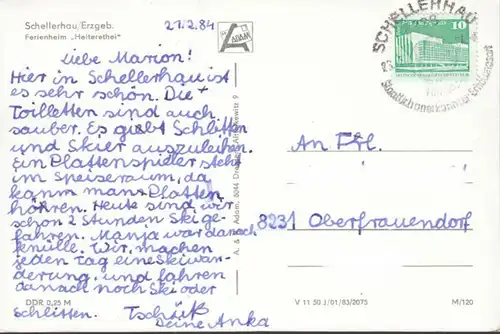 Schellerhau/Erzgeb.
Ferienheim „Heiterethei"
21.2.84
ADAM
SCHELLERHAU
10
DDR
Liebe Marion!
Hier in Schellerhau ist
es sehr schön. Die
Toilletten sind auch
sauber. Es giebt Schlitten
und Skier auszuleihen.
Ein Plattenspieler steht
im Speiseraum, da
kann man Platten
hören. Heute sind wir
schon 2 Stunden Ski ge-
fahren. Manja war danach
knülle. Wir machen
jeden Tag eine skiwan-
derung und fahren
danach noch Ski oder
Schlitten. Tschüß
Deine Anka
An Frl.
8231 Oberfrauendorf
A. & R. Adam, 8044 Dresden, Altkrewitz 9
DDR 0,25 M
V 11 50 J/01/83/2075
M/120